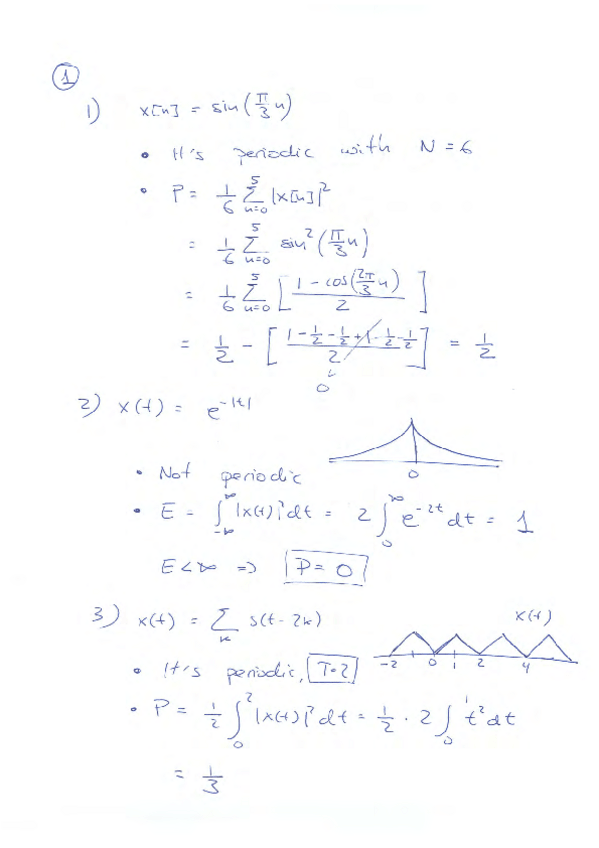 ①
1) x[n] = sin(π/3 n)
• It's periodic with N = 6
• P = 1/6 ∑_{n=0}^{5} |x[n]|²
= 1/6 ∑_{n=0}^{5} sin²(π/3 n)
= 1/6 ∑_{n=0}^{5} [ (1 - cos(2π/3 n)) / 2 ]
= 1/2 - [ (1 - 1/2 - 1/2 + 1 - 1/2 - 1/2) / 2 ] = 1/2
0
2) x(t) = e^{-|t|}
0
• Not periodic
• E = ∫_{-∞}^{∞} |x(t)|² dt = 2 ∫_{0}^{∞} e^{-2t} dt = 1
E < ∞ => P = 0
3) x(t) = ∑_k s(t - 2k) x(t)
-2 0 1 2 4
• It's periodic, T=2
• P = 1/2 ∫_{0}^{2} |x(t)|² dt = 1/2 · 2 ∫_{0}^{1} t² dt
= 1/3